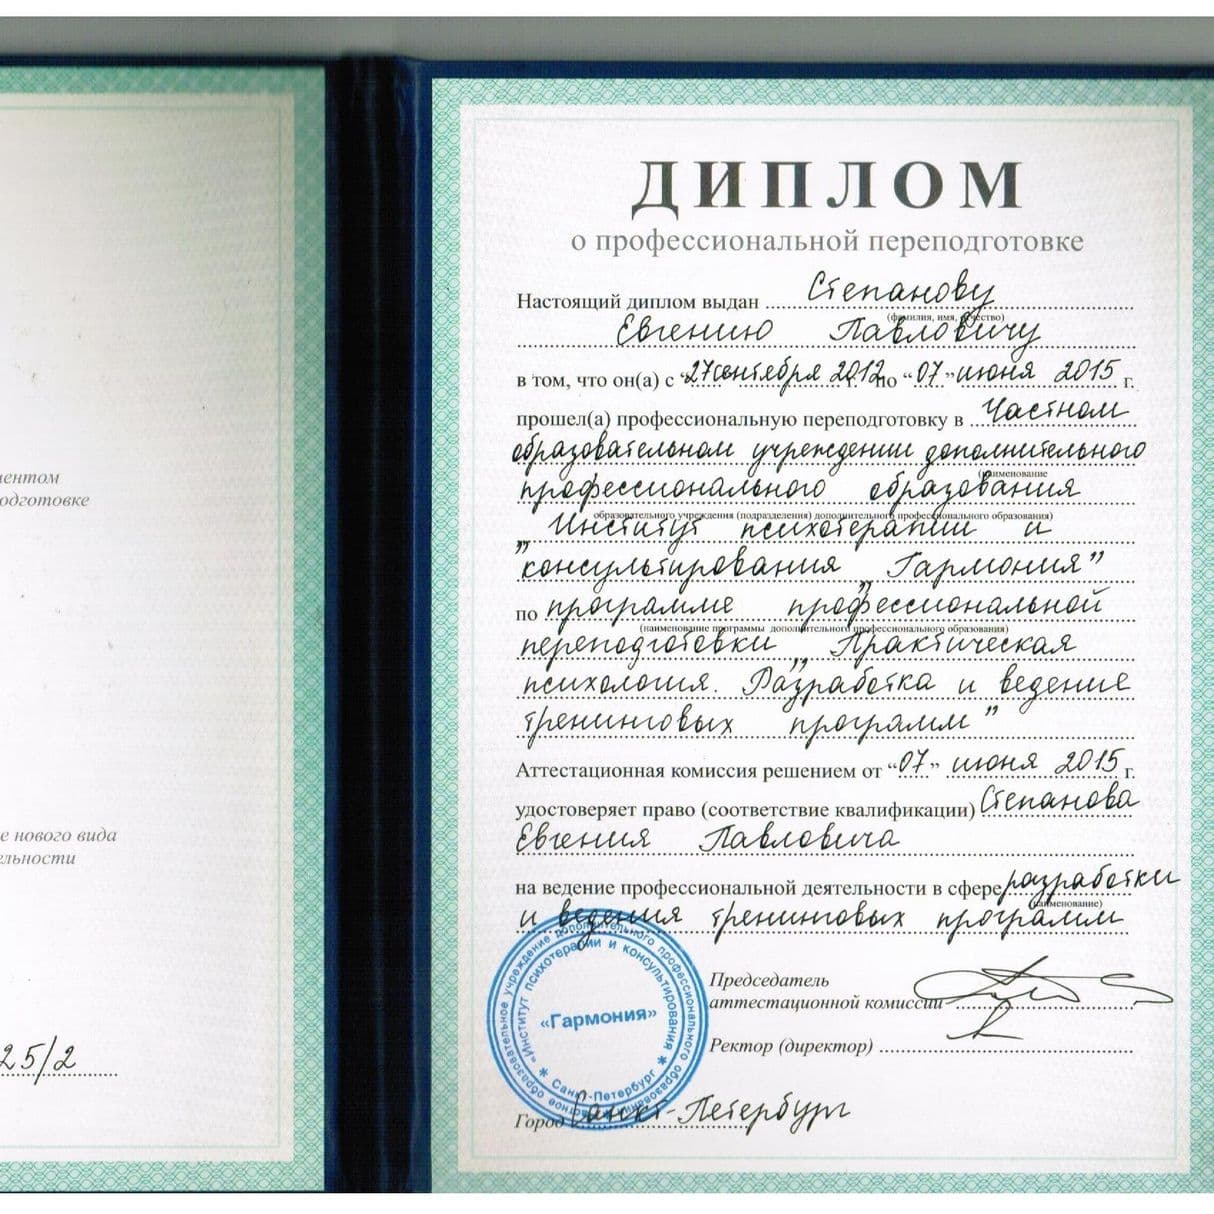 ентом
одготовке
е нового вида
ельности
25/2
ДИПЛОМ
о профессиональной переподготовке
Настоящий диплом выдан Степанову
(фамилия, имя, отчество)
Евгению Павловичу
в том, что он(а) с “27 сентября 2012 по “07” июня 2015 г.
прошел(а) профессиональную переподготовку в Частном
образовательном учреждении дополнительного
(наименование
профессионального образования
образовательного учреждения (подразделения) дополнительного профессионального образования)
„Институт психотерапии и
консультирования „Гармония”
по программе профессиональной
(наименование программы дополнительного профессионального образования)
переподготовки „Практическая
психология. Разработка и ведение
тренинговых программ”
Аттестационная комиссия решением от “07” июня 2015 г.
удостоверяет право (соответствие квалификации) Степанова
Евгения Павловича
на ведение профессиональной деятельности в сфере разработки
(наименование)
и ведения тренинговых программ
Председатель
аттестационной комиссии
Ректор (директор)
Город Санкт-Петербург
образовательное учреждение дополнительного профессионального образования
«Институт психотерапии и консультирования
«Гармония»
* Санкт-Петербург *